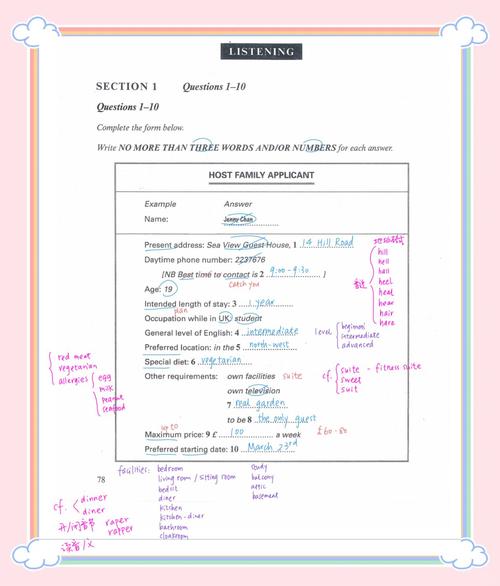 LISTENING
SECTION 1 Questions 1–10
Questions 1–10
Complete the form below.
Write NO MORE THAN THREE WORDS AND/OR NUMBERS for each answer.
HOST FAMILY APPLICANT
Example Answer
Name: Jenny Chan
Present address: Sea View Guest House, 1 14 Hill Road
Daytime phone number: 2237676
[NB Best time to contact is 2 9:00-9:30 ]
catch you
Age: 19
Intended length of stay: 3 1 year
plan
Occupation while in UK: student
General level of English: 4 intermediate
Preferred location: in the 5 north-west
Special diet: 6 vegetarian
Other requirements: own facilities suite
own television
7 real garden
to be 8 the only guest
up to
Maximum price: 9 £ 100 a week £60-80
Preferred starting date: 10 March 23rd
hill
hell
hall
heel
heat
hear
hair
hare
level
intermediate
advanced
cf. suite - fitness suite
sweet
suit
red meat
vegetarian
allergies egg
milk
peanut
seafood
78
facilities: bedroom
living room / sitting room
bedsit
diner
kitchen
kitchen-diner
bathroom
cloakroom
study
balcony
attic
basement
cf. dinner
diner
开/闭音节 raper
rapper